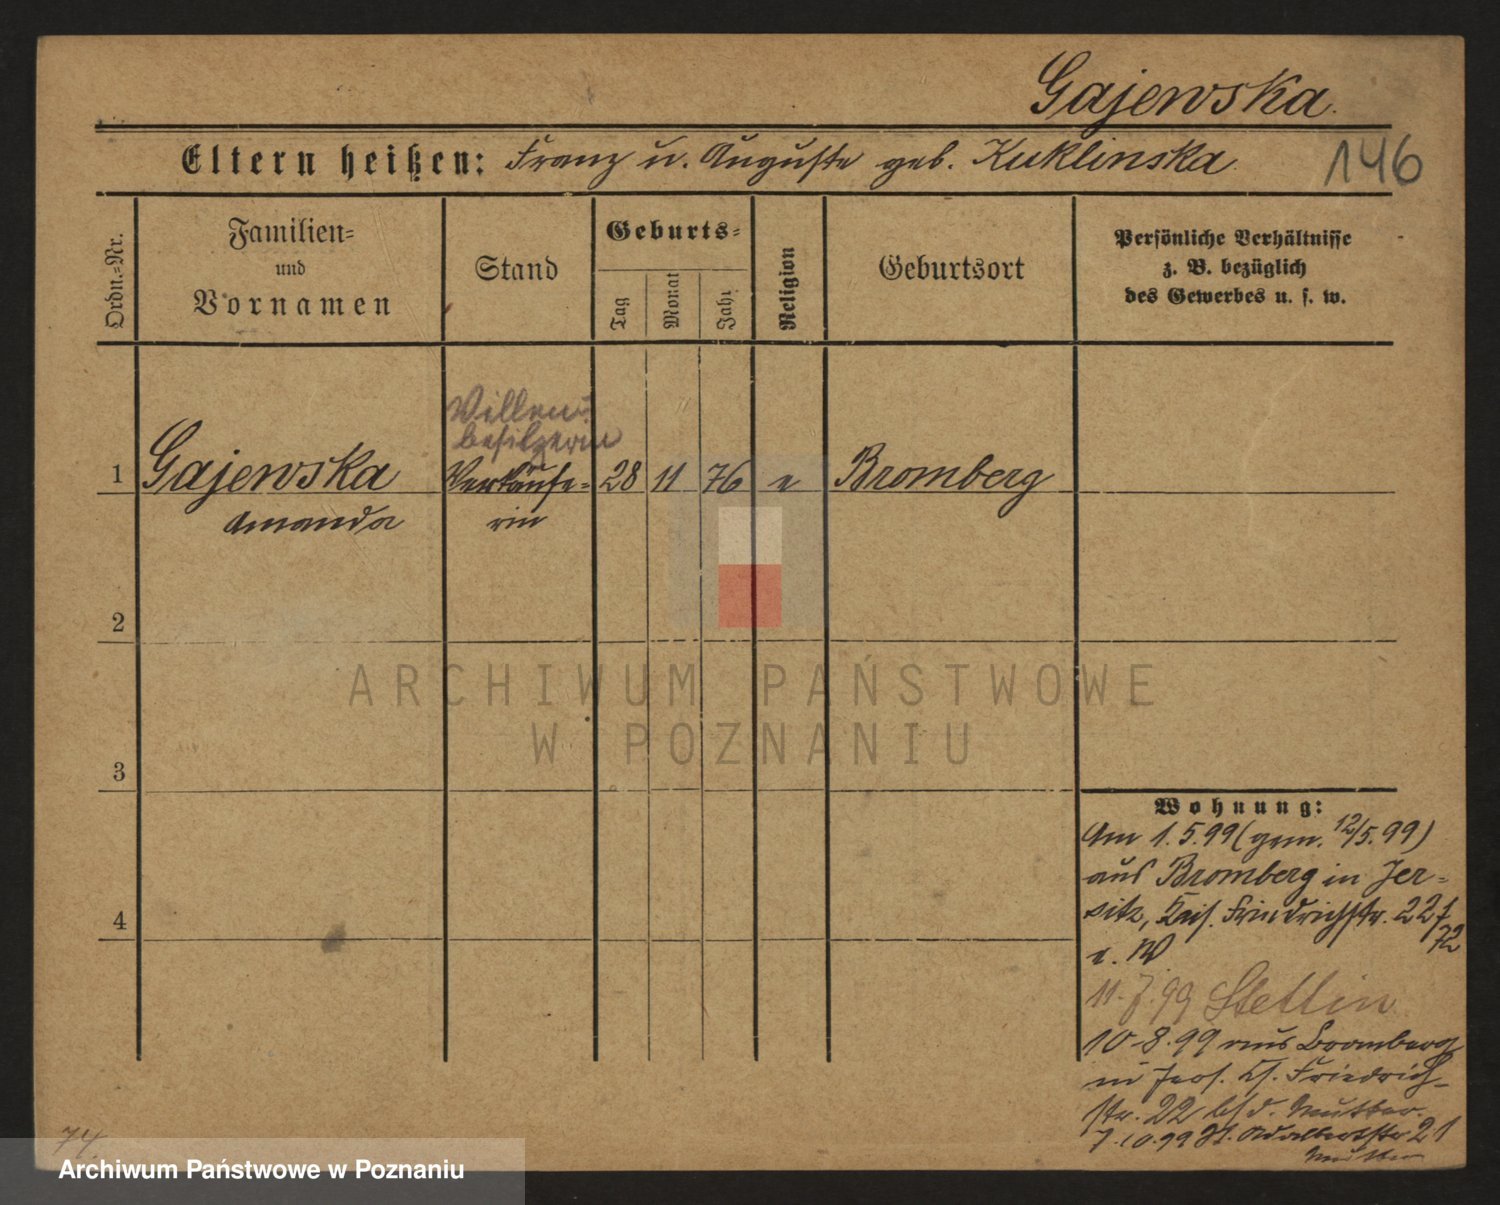 Gajewska.
Eltern heißen: Franz u. Auguste geb. Kuklinska.
146
Ordn.-Nr.
Familien-
und
Vornamen
Stand
Geburts-
Tag
Monat
Jahr
Religion
Geburtsort
Persönliche Verhältnisse
z. B. bezüglich
des Gewerbes u. s. w.
Villen-
besitzerin
1 Gajewska Verkäufe- 28 11 76 e Bromberg
Amanda rin
2
3
4
Wohnung:
Am 1.5.99 (gem. 12/5.99)
aus Bromberg in Jer-
sitz, Kais. Friedrichstr. 22
11.7.99 Stettin
10-8.99 aus Bromberg
in Jers. Ks. Friedrich-
str. 22 b/d. Mutter.
7.10.99 St. Adalbertstr 21
Mutter
74.
ARCHIWUM PAŃSTWOWE
W POZNANIU
Archiwum Państwowe w Poznaniu